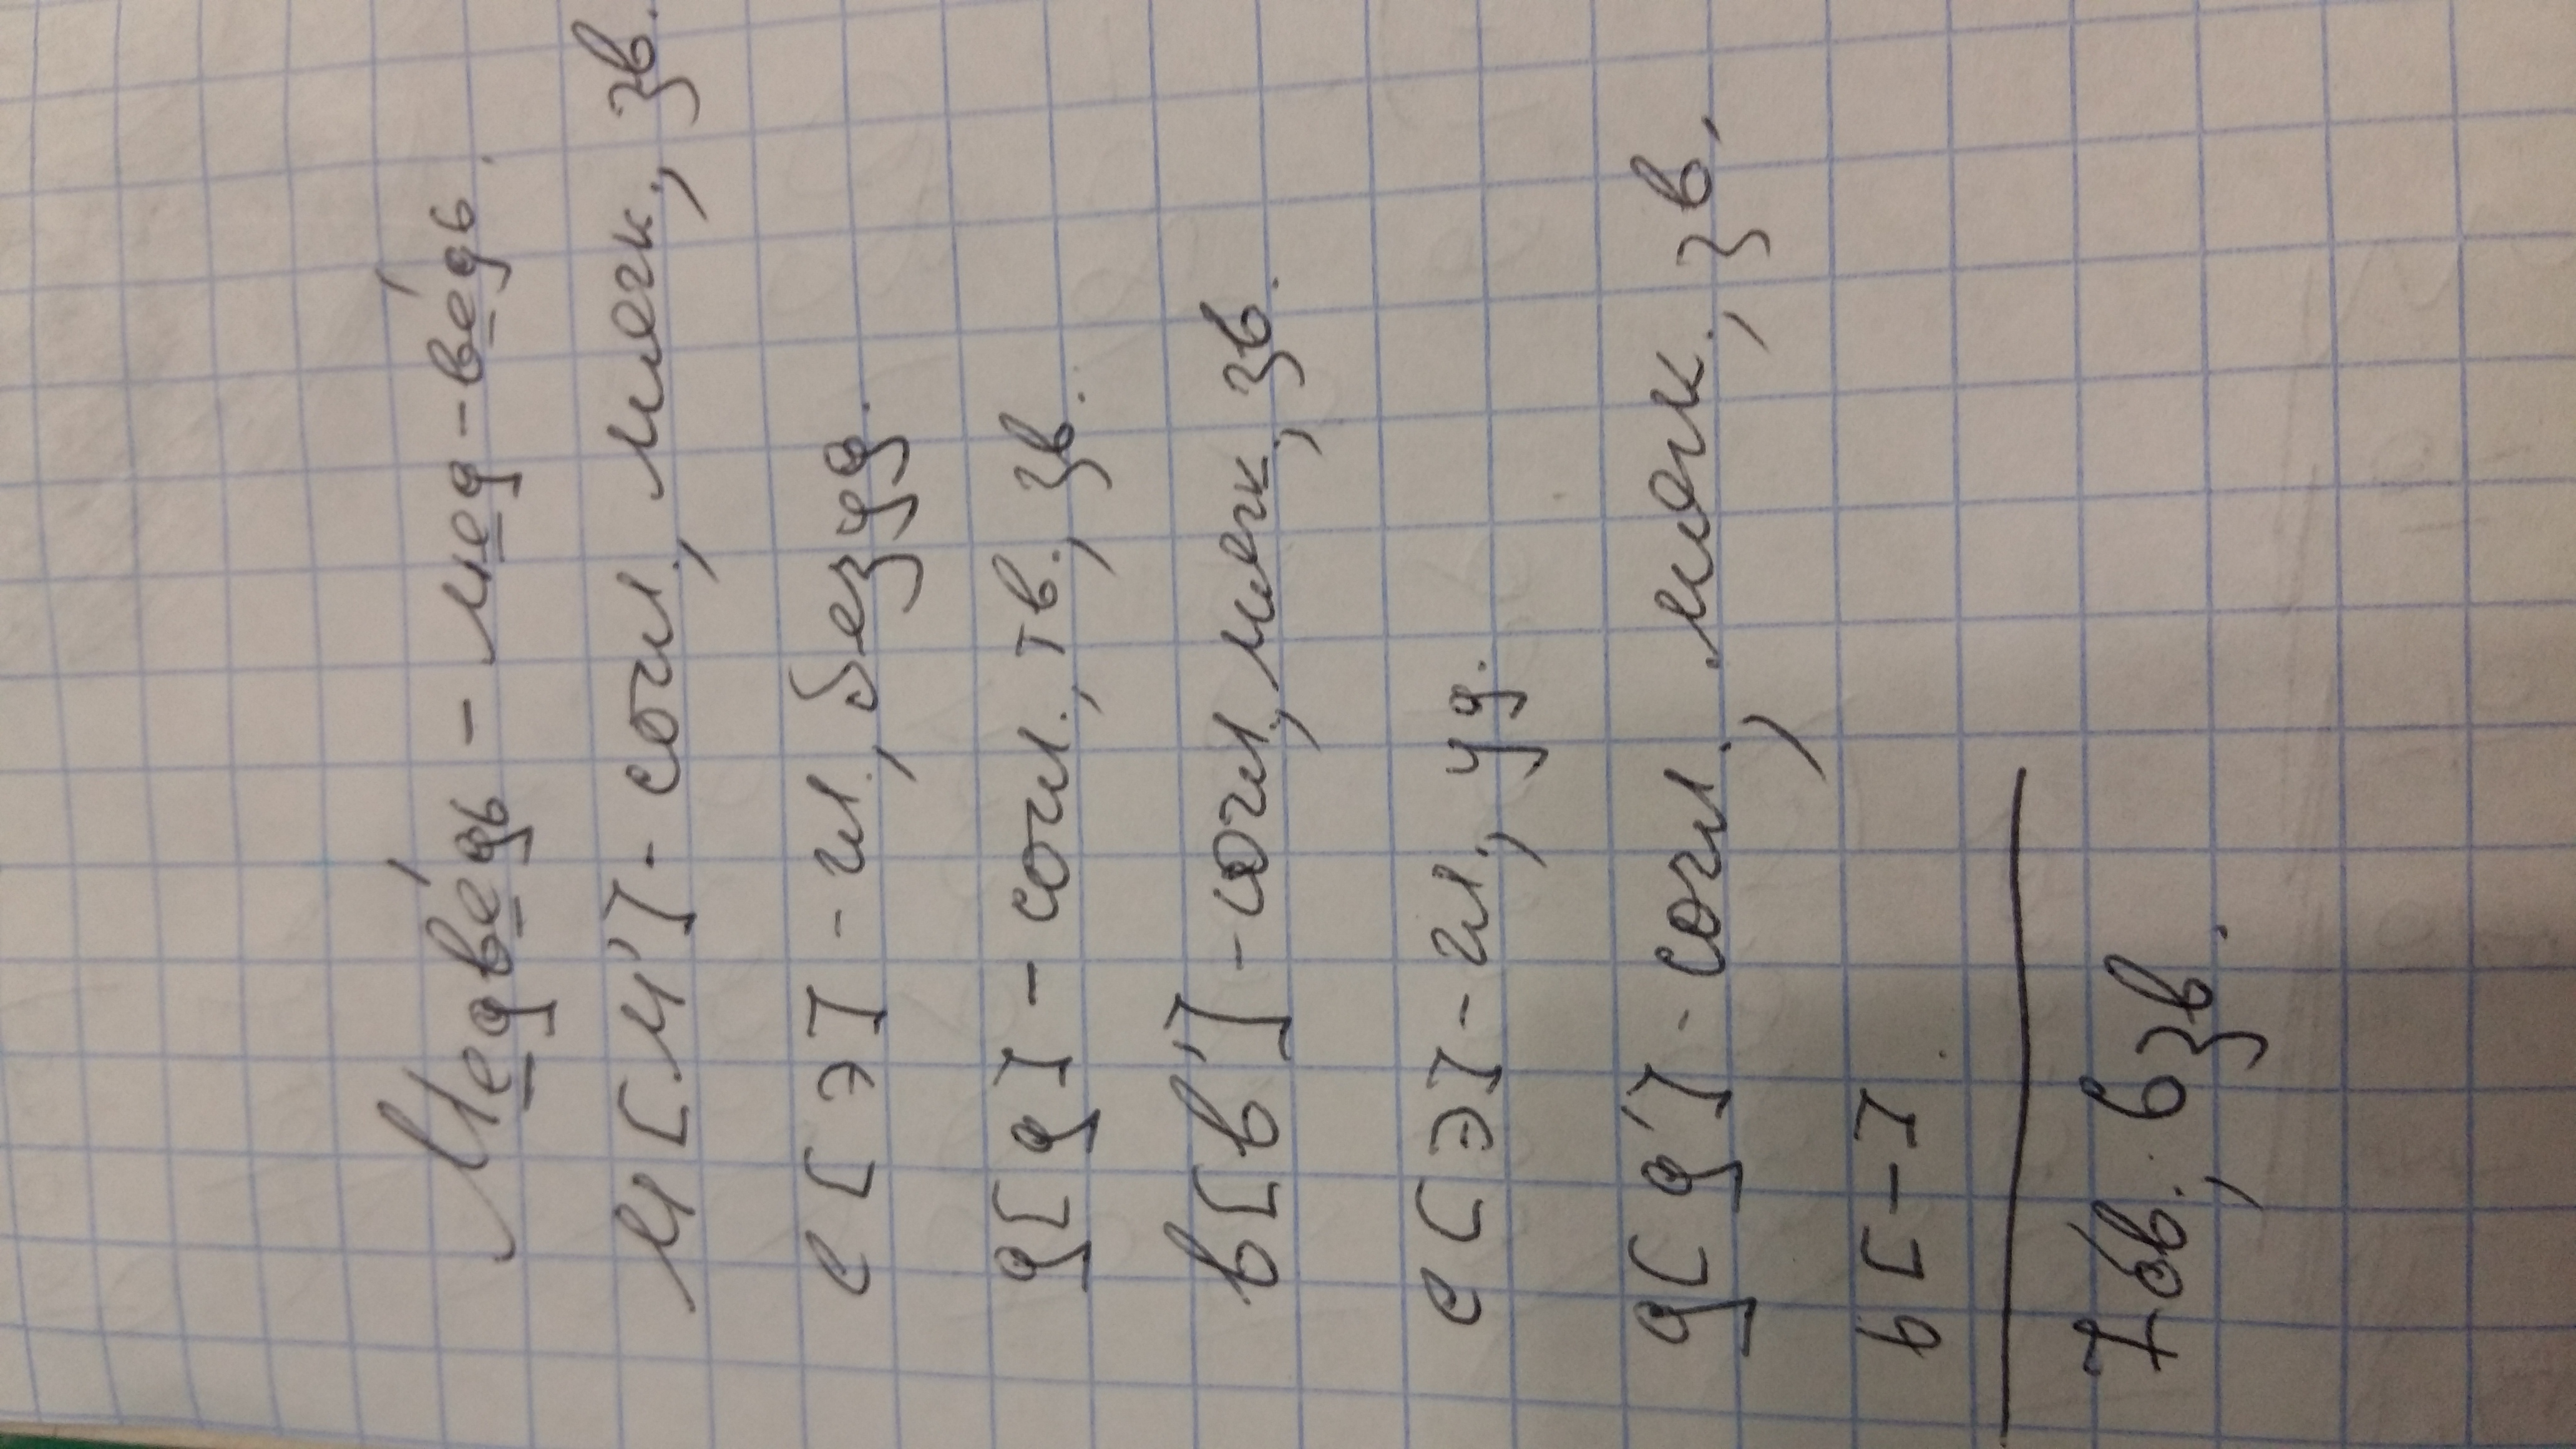 Медве́дь - мед-ве́дь.
м [м'] - согл., мягк., зв.
е [э] - гл., безуд.
д [д] - согл., тв., зв.
в [в'] - согл., мягк., зв.
е [э] - гл., уд.
д [д'] - согл., мягк., зв.
ь [-]
7 бв., 6 зв.